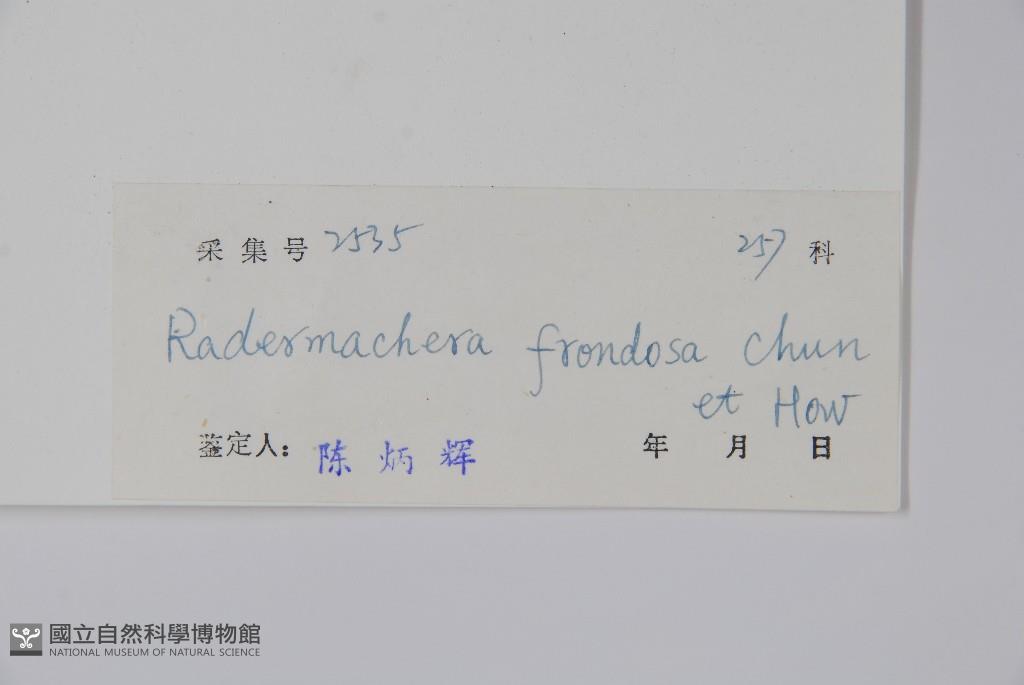 采集号 2535 257 科
Radermachera frondosa Chun
et How
鉴定人: 陈炳辉 年 月 日
國立自然科學博物館
NATIONAL MUSEUM OF NATURAL SCIENCE